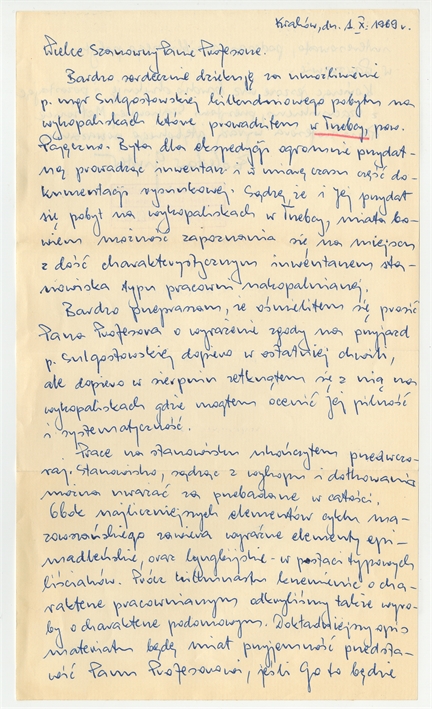 Kraków, dn. 1 X. 1969 r.
Wielce Szanowny Panie Profesorze.
Bardzo serdecznie dziękuję za umożliwienie
p. mgr Sulgostowskiej kilkudniowego pobytu na
wykopaliskach które prowadziłem w Trębcy, pow.
Pajęczno. Była dla ekspedycji ogromnie przydat-
na prowadząc inwentarz i w miarę czasu część do-
kumentacji rysunkowej. Sądzę, że i jej przydał
się pobyt na wykopaliskach w Trębcy, miała bo-
wiem możność zapoznania się na miejscu
z dość charakterystycznym inwentarzem sta-
nowiska typu pracowni nakopalnianej.
Bardzo przepraszam, że ośmieliłem się prosić
Pana Profesora o wyrażenie zgody na przyjazd
p. Sulgostowskiej dopiero w ostatniej chwili,
ale dopiero w sierpniu zetknąłem się z nią na
wykopaliskach gdzie mogłem ocenić jej pilność
i systematyczność.
Prace na stanowisku ukończyłem przedwczo-
raj. Stanowisko, sądząc z wykopu i
można uważać za przebadane w całości.
Obok najliczniejszych elementów cyklu ma-
zowszańskiego zawiera wyraźne elementy epi-
madleńskie, oraz lyngbijskie - w postaci typowych
liściaków. Prócz krzemienic o cha-
rakterze pracownianym odkryliśmy także wyro-
by o charakterze podomowym. Dokładniejszy opis
materiału będę miał przyjemność przedsta-
wić Panu Profesorowi, jeśli Go to będzie